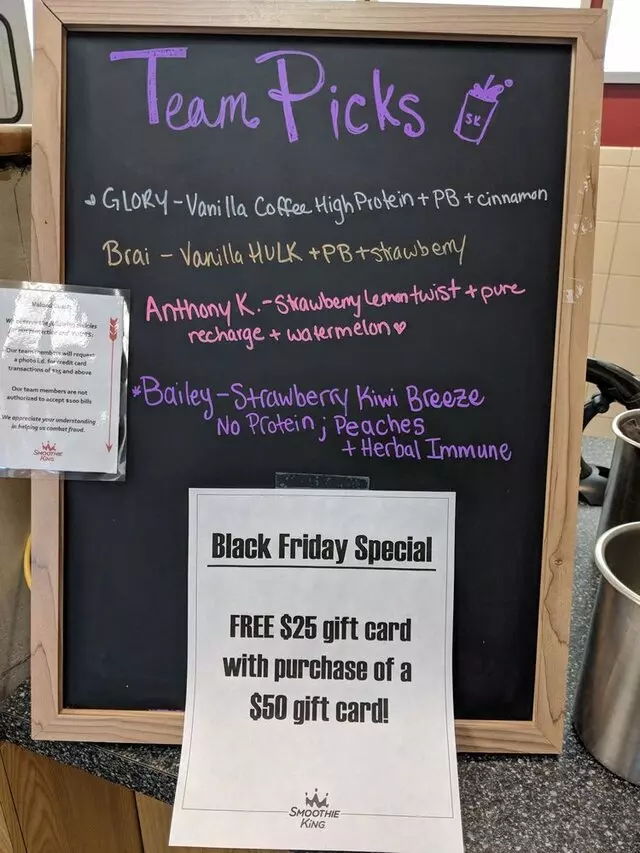 Team Picks
SK
GLORY - Vanilla Coffee High Protein + PB + cinnamon
Brai - Vanilla HULK + PB + strawberry
Anthony K. - Strawberry Lemon twist + pure
recharge + watermelon
*Bailey - Strawberry Kiwi Breeze
No Protein ; Peaches
+ Herbal Immune
Our team members will request
a photo I.d. for credit card
transactions of $25 and above
Our team members are not
authorized to accept $100 bills
We appreciate your understanding
in helping us combat fraud.
SMOOTHIE
KING
Black Friday Special
FREE $25 gift card
with purchase of a
$50 gift card!
SMOOTHIE
KING